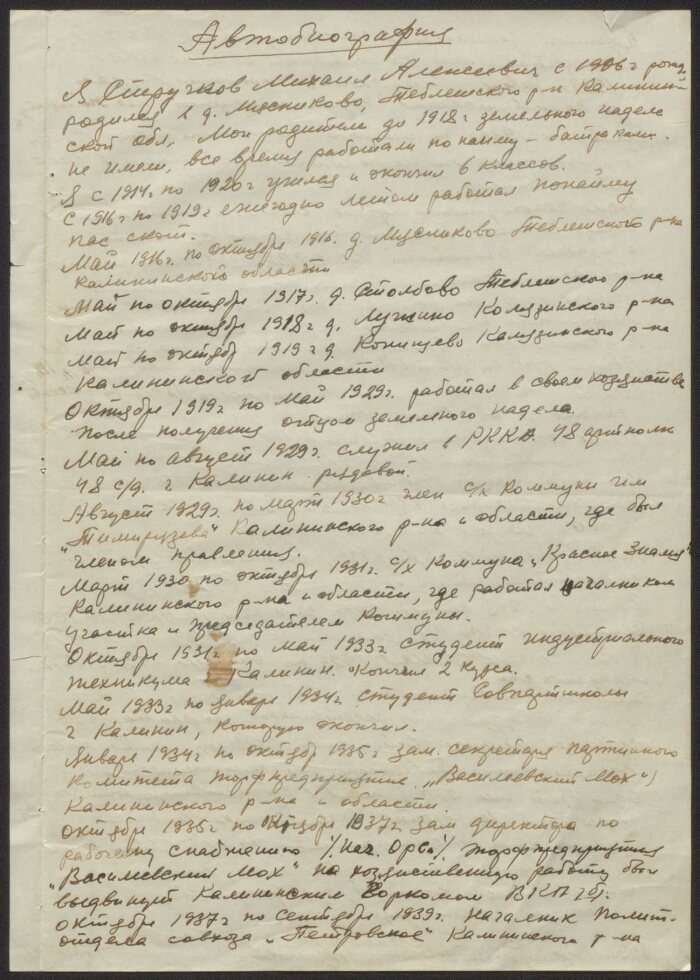 Автобиография
Я Стручков Михаил Алексеевич с 1906 г рожд.
родился в д. Мясниково, Теблешского р-н Калинин-
ской обл. Мои родители до 1918 г земельного надела
не имели, все время работали по найму – батраками.
Я с 1914 г. по 1920 г учился и окончил 6 классов.
С 1916 г по 1919 г ежегодно летом работал понайму
пас скот.
Май 1916 г. по октября 1916. д. Мясниково Теблешского р-на
Калининской области
Май по октябрь 1917 г. д. Столбово Теблешского р-на
Май по октябр 1918 г д. Лучкино Колязинского р-на
Май по октябр 1919 г д. Конищево Калязинского р-на
Калининской области
Октября 1919 г по Май 1929 г. работал в своем хозяйстве
после получения отцом земельного надела.
Май по август 1929 г. служил в РККА. 48 артполк
48 с/д. г Калинин рядовой.
Август 1929 г. по март 1930 г член с/х Коммуны им
"Тимирязева" Калининского р-на и области, где был
членом правления.
Март 1930 по октября 1931 г. с/х Коммуна "Красное Знамя"
Калининского р-на и области, где работал началником
участка и председателем Коммуны.
Октября 1931 г по май 1933 г студент индустриального
техникума Калинин. Кончил 2 курса.
Май 1933 г по января 1934 г студент Совпартшколы
г Калинин, которую окончил.
Января 1934 г по октябр 1935 г зам. секретаря партийного
комитета торфпредприятия „Васильевский Мох")
Калининского р-на и области.
Октября 1935 г по октября 1937 г. зам директора по
рабочему снабжению /Нач. Орса/ торфпредприятия
„Василевский Мох" на хозяйственную работу был
выдвинут Калининским Горкомом ВКП(б).
Октября 1937 г по сентября 1939 г. началник Полит-
отдела совхоза „Петровское" Калининского р-на